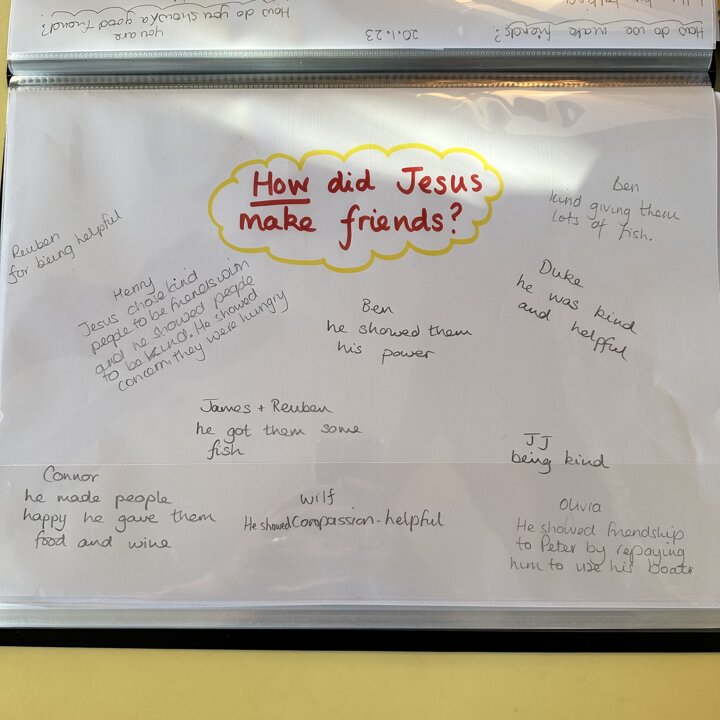 How do you show
you are
a good friend?
20.1.23
How do we make friends?
How did Jesus
make friends?
Reuben
for being helpful
Henry
Jesus chose kind
people to be friends with
and he showed people
to be kind. He showed
concern they were hungry
Ben
he showed them
his power
Ben
kind giving them
lots of fish.
Duke
he was kind
and helpful
James + Reuben
he got them some
fish
JJ
being kind
Connor
he made people
happy he gave them
food and wine
Wilf
He showed Compassion - helpful
Olivia
He showed friendship
to Peter by repaying
him to use his boat